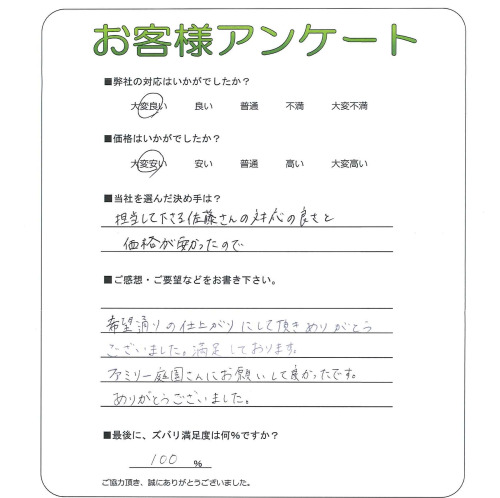 お客様アンケート
■弊社の対応はいかがでしたか？
大変良い 良い 普通 不満 大変不満
■価格はいかがでしたか？
大変安い 安い 普通 高い 大変高い
■当社を選んだ決め手は？
担当して下さる佐藤さんの対応の良さと
価格が安かったので
■ご感想・ご要望などをお書き下さい。
希望通りの仕上がりにして頂きありがとう
ございました。満足しております。
ファミリー庭園さんにお願いして良かったです。
ありがとうございました。
■最後に、ズバリ満足度は何%ですか？
100 %
ご協力頂き、誠にありがとうございました。